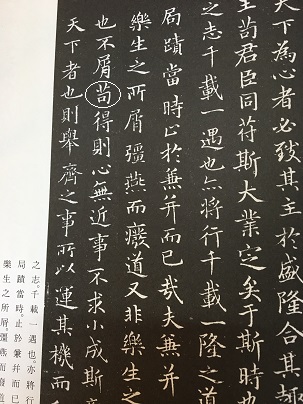 天下為心者必致其主於盛隆合其趣
王苟君臣同符斯大業定矣于斯時也
之志千載一遇也亦將行千載一隆之道
局蹟當時止於兼并而已哉夫兼并
樂生之所屑彊燕而廢道又非樂生之
也不屑苟得則心無近事不求小成斯
天下者也則舉齊之事所以運其機而
之志。千載一遇也。亦將行
局蹟當時。止於兼并而已
樂生之所屑。彊燕而廢道